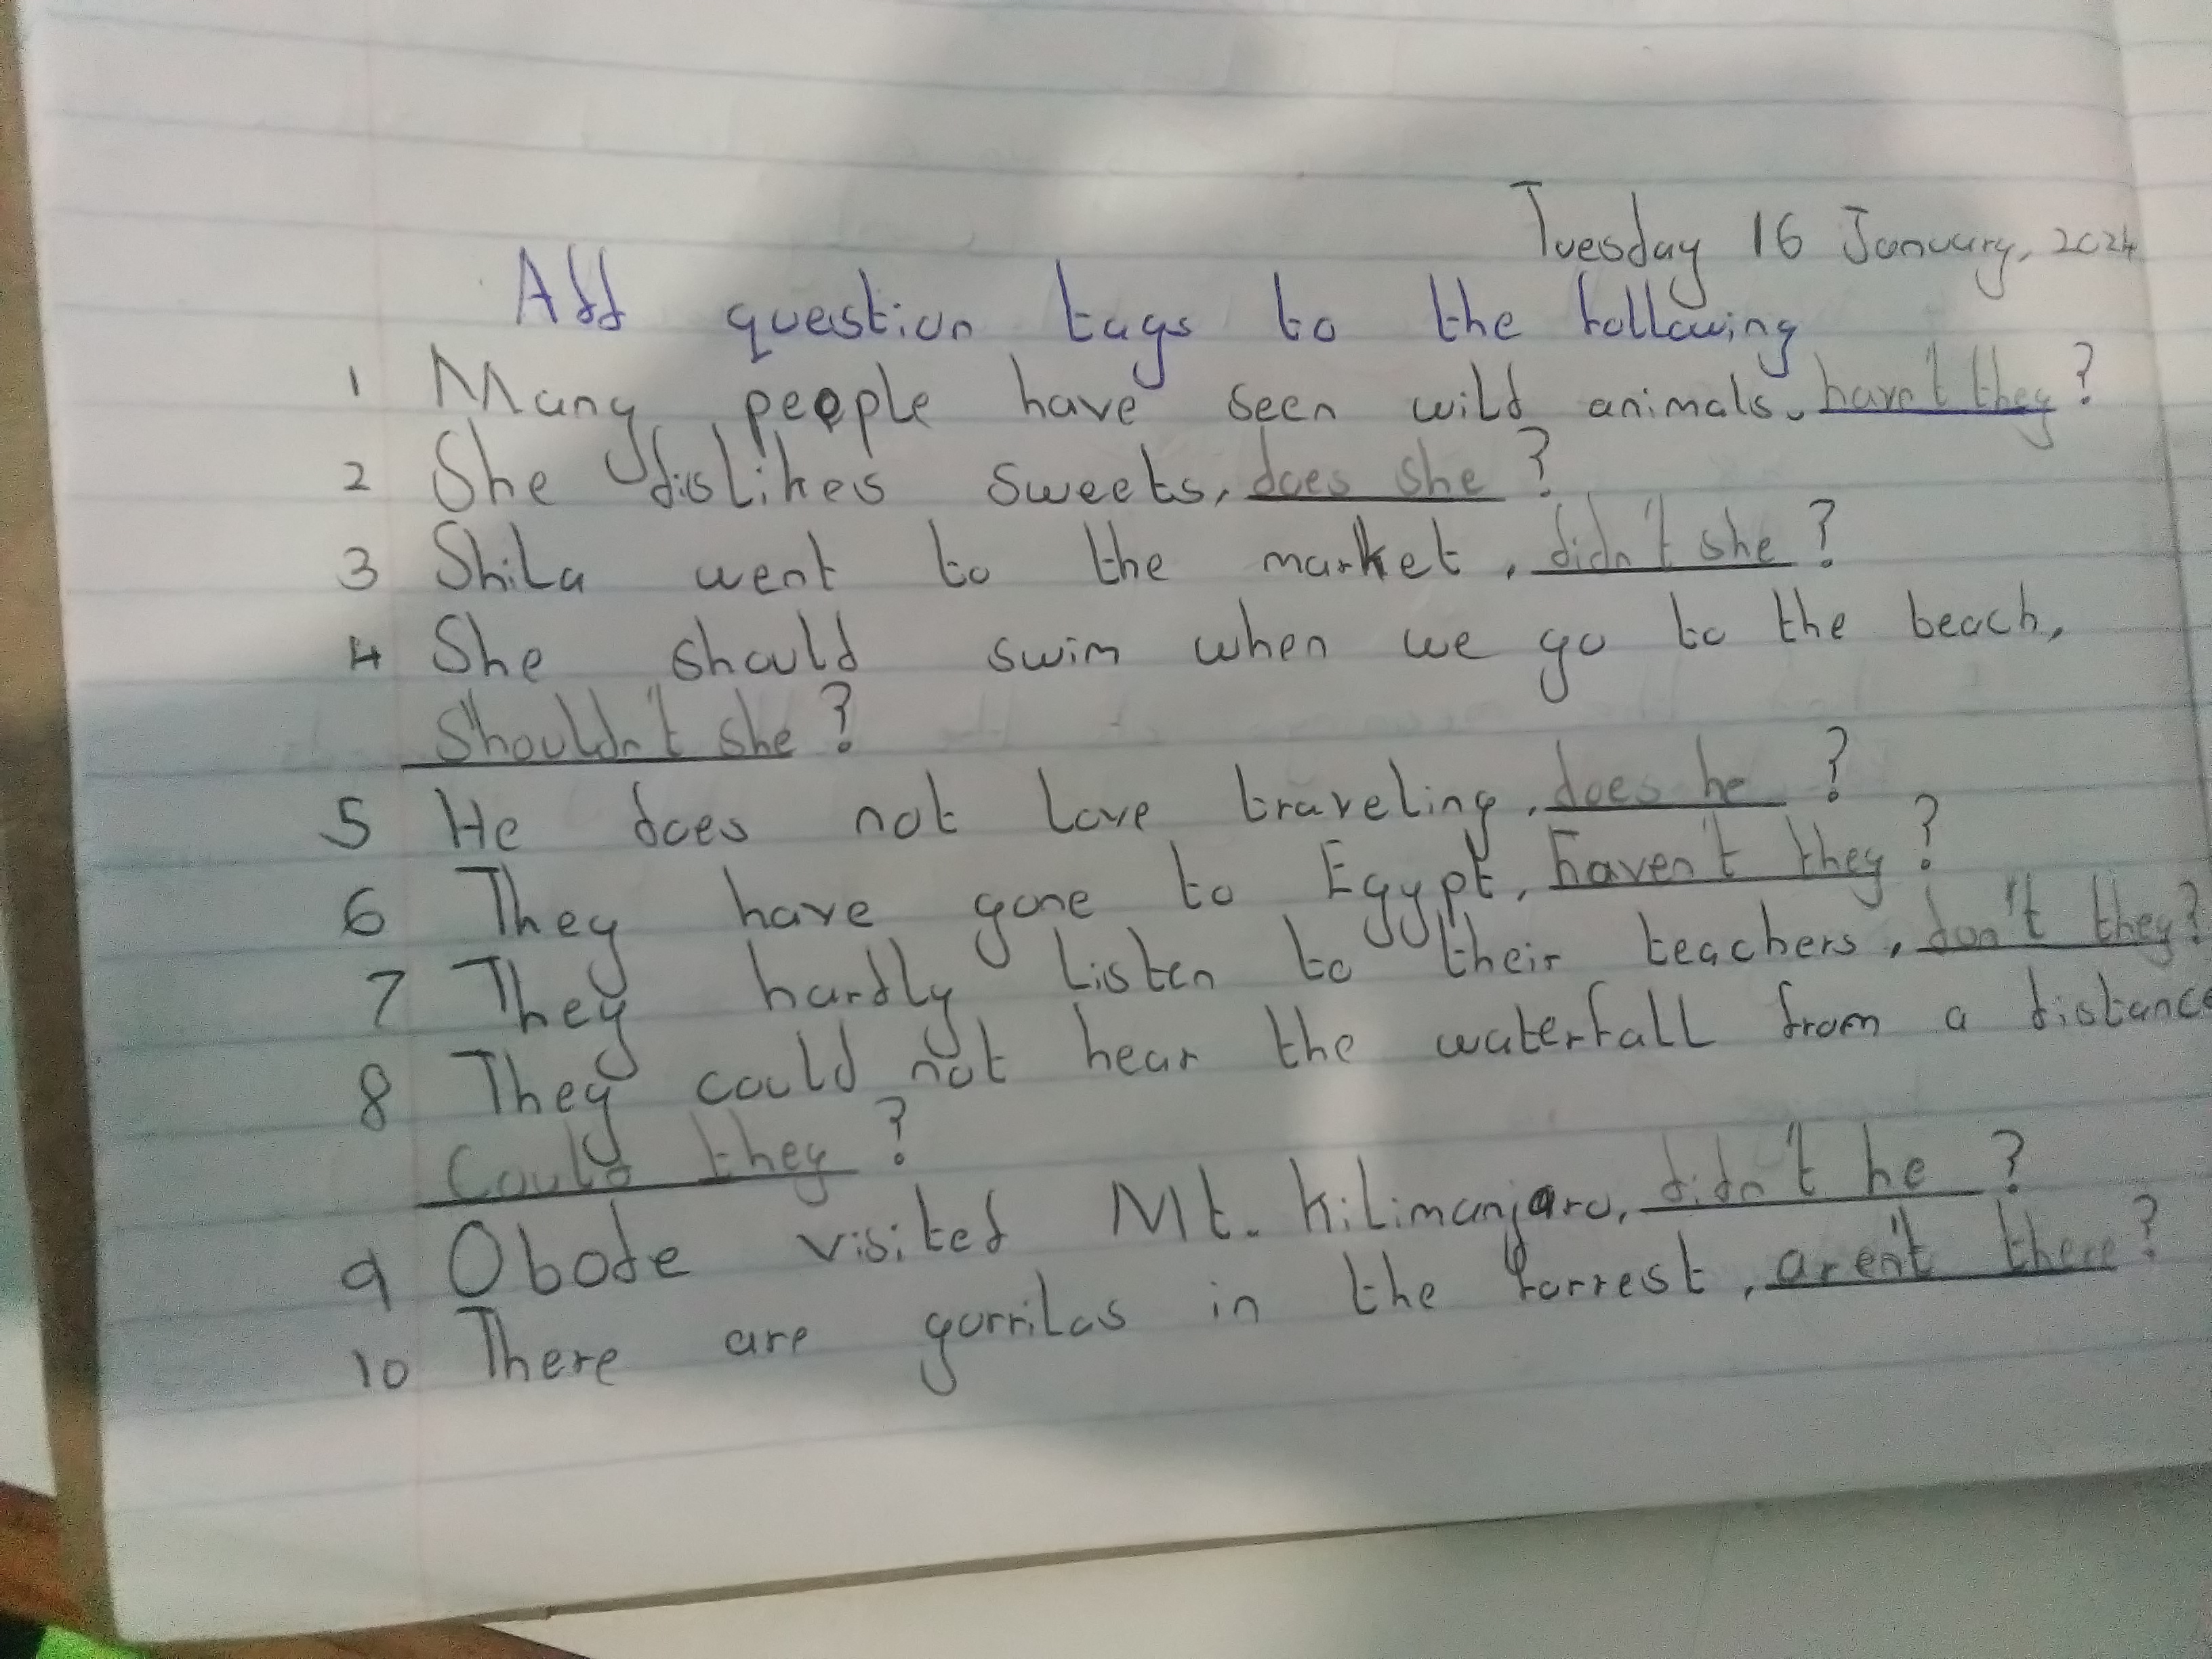 Tuesday 16 January, 2024
Add question tags to the following
1 Many people have seen wild animals, havn't they?
2 She dislikes sweets, does she?
3 Shila went to the market, didn't she?
4 She should swim when we go to the beach,
Shouldn't she?
5 He does not love traveling, does he?
6 They have gone to Egypt, haven't they?
7 They hardly listen to their teachers, don't they?
8 They could not hear the waterfall from a distance
Could they?
9 Obode visited Mt. Kilimanjaro, didn't he?
10 There are gorrilas in the forrest, aren't there?